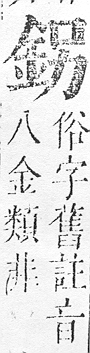 俗字舊註音
八金類非